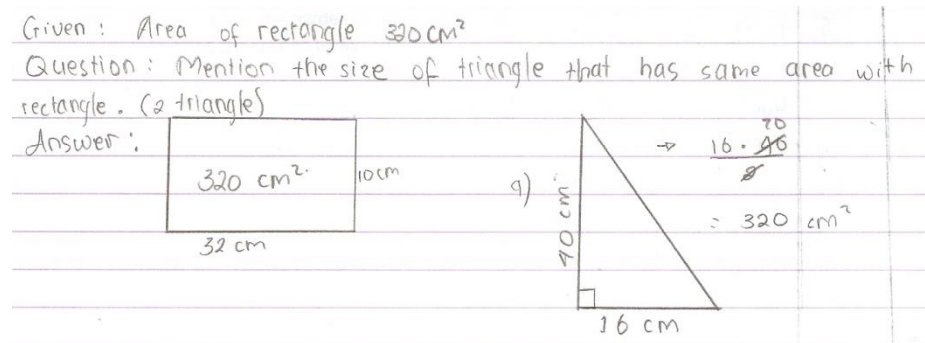 Given : Area of rectangle 320 cm²
Question : Mention the size of triangle that has same area with
rectangle. (2 triangle)
Answer :
320 cm²
10 cm
32 cm
a)
40 cm
16 cm
→ 16 · 40 20
2
= 320 cm²